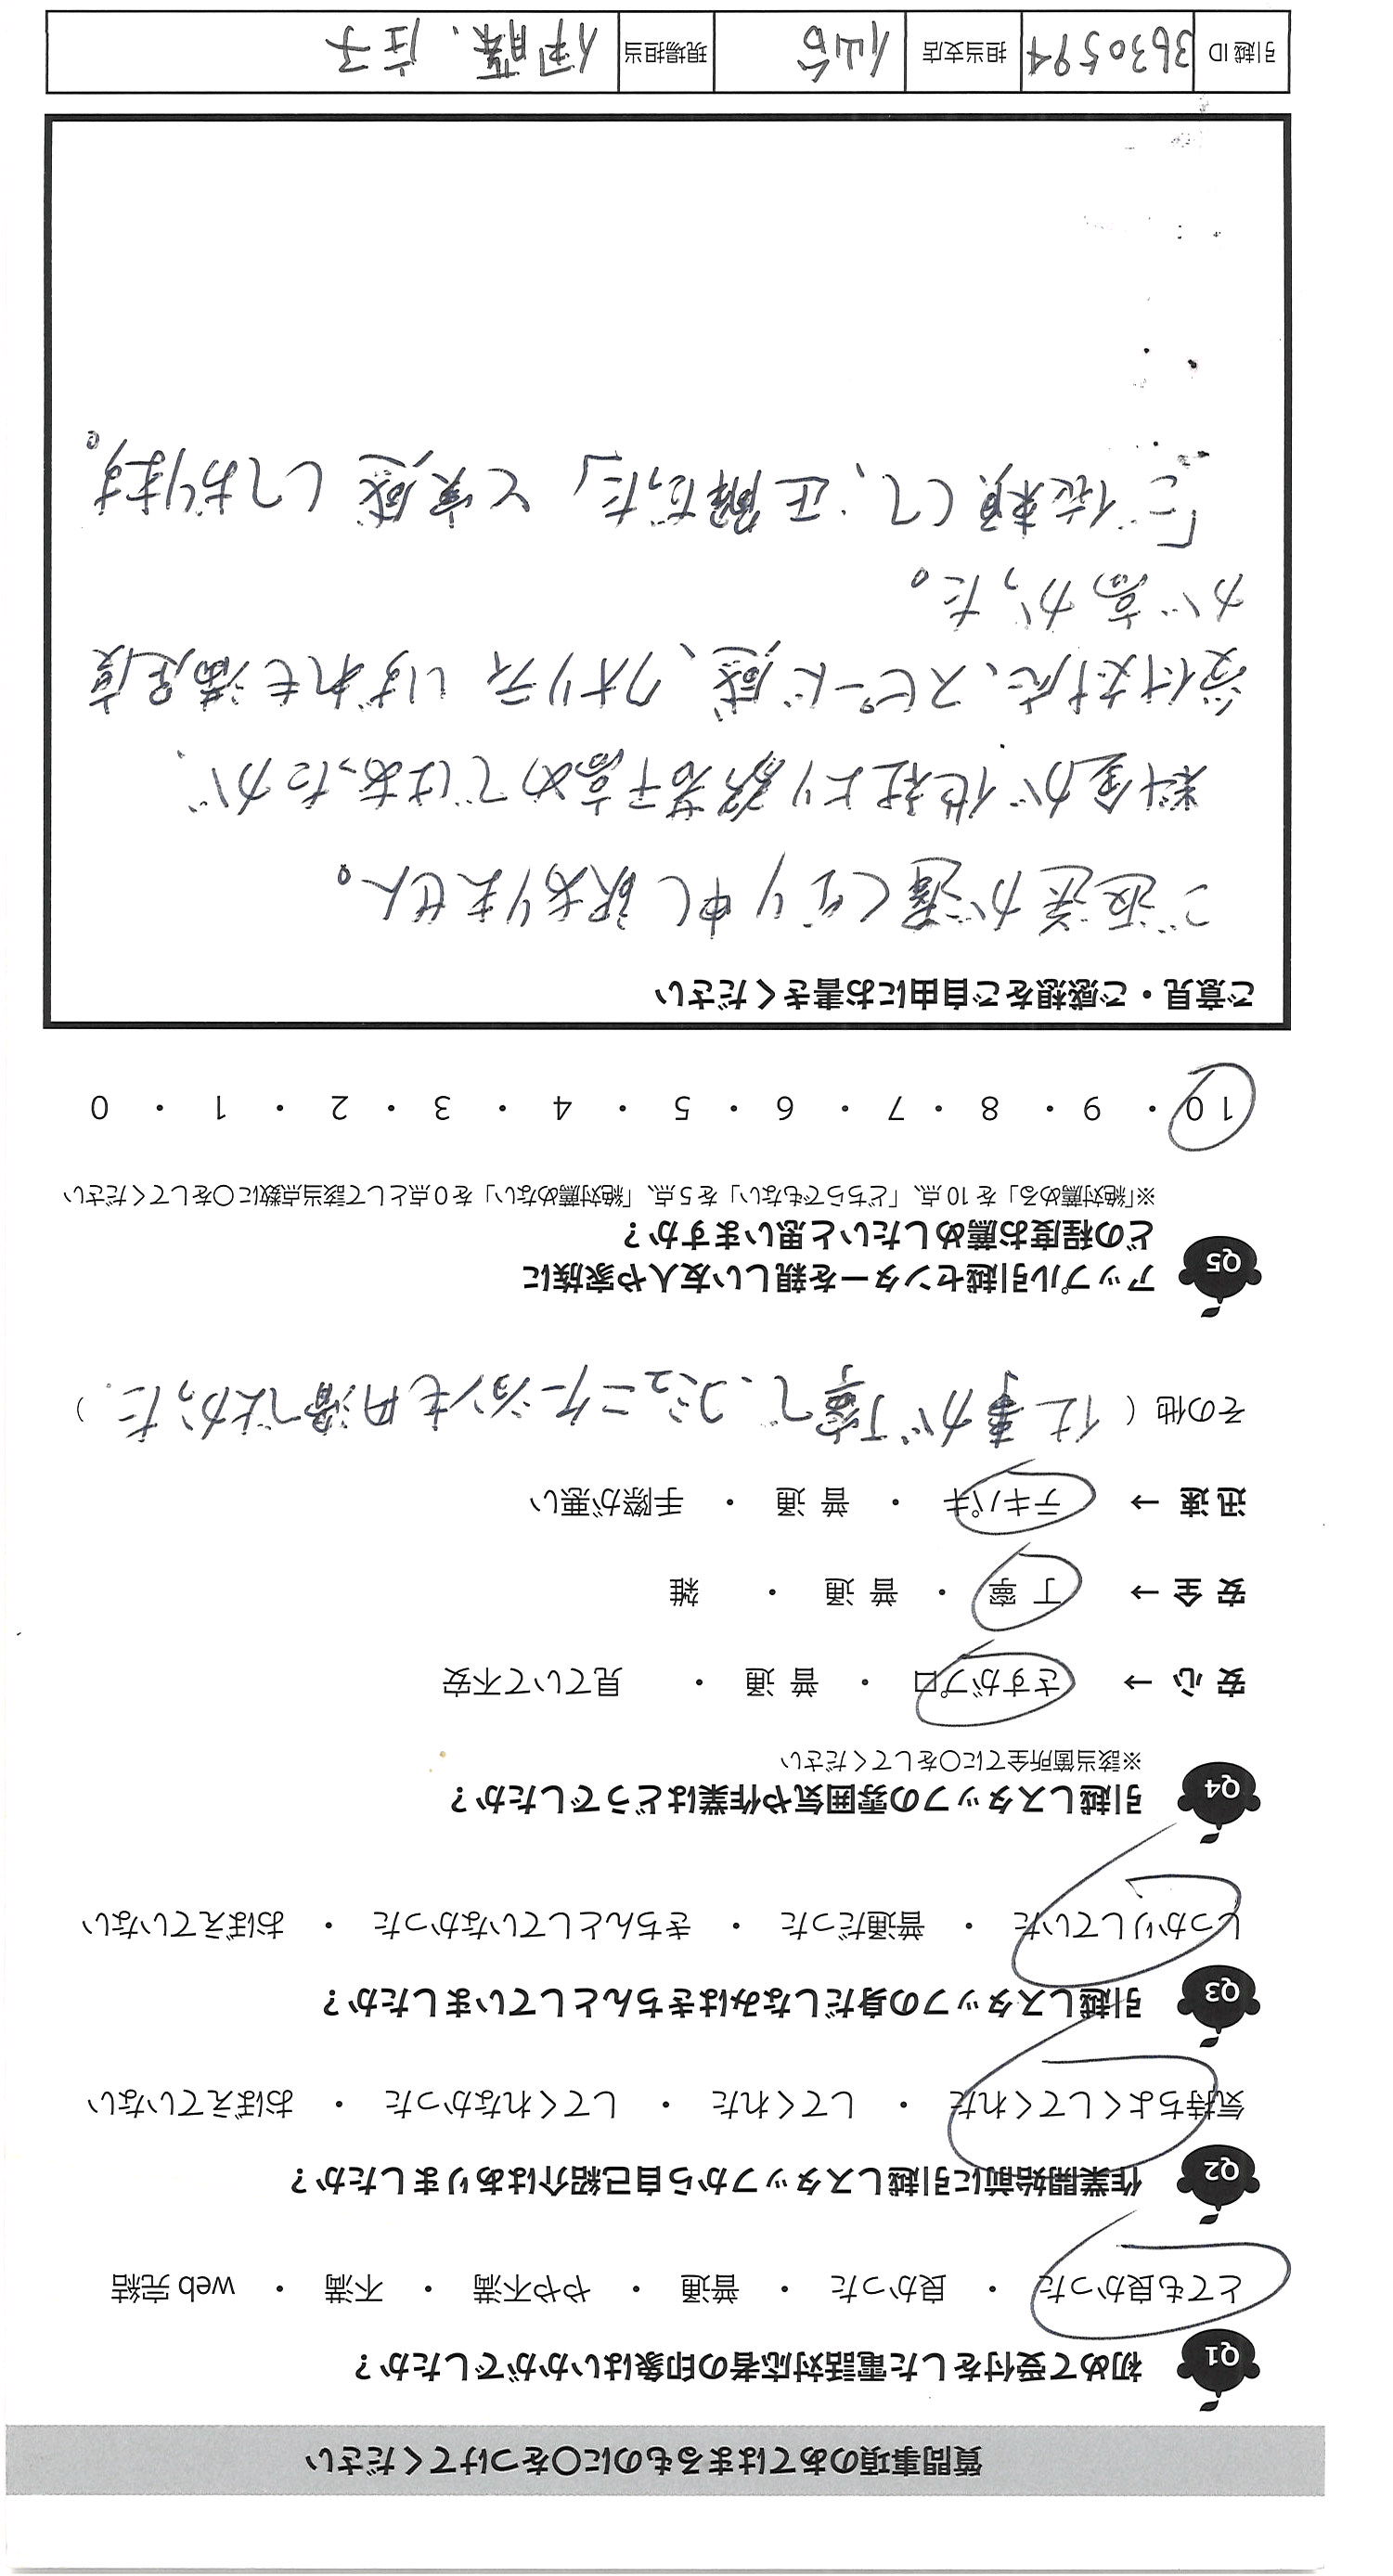 質問事項のあてはまるものに〇をつけてください
Q1 初めて受付をした電話対応者の印象はいかがでしたか？
とても良かった ・ 良かった ・ 普通 ・ やや不満 ・ 不満 ・ web 完結
Q2 作業開始前に引越しスタッフから自己紹介はありましたか？
気持ちよくしてくれた ・ してくれた ・ してくれなかった ・ おぼえていない
Q3 引越しスタッフの身だしなみはきちんとしていましたか？
しっかりしていた ・ 普通だった ・ きちんとしていなかった ・ おぼえていない
Q4 引越しスタッフの雰囲気や作業はどうでしたか？
※該当箇所全てに〇をしてください
安 心 → さすがプロ ・ 普 通 ・ 見ていて不安
安 全 → 丁 寧 ・ 普 通 ・ 雑
迅 速 → テキパキ ・ 普 通 ・ 手際が悪い
その他 ( 仕事が丁寧で、コミュニケーションも円滑でよかった。 )
Q5 アップル引越センターを親しい友人や家族に
どの程度お薦めしたいと思いますか？
※「絶対薦める」を 10 点、「どちらでもない」を 5 点、「絶対薦めない」を 0 点として該当点数に〇をしてください
10 ・ 9 ・ 8 ・ 7 ・ 6 ・ 5 ・ 4 ・ 3 ・ 2 ・ 1 ・ 0
ご意見・ご感想をご自由にお書きください
ご返送が遅くなり申し訳ありません。
料金が他社より若干高めではあったが、
受付対応、スピード感、クオリティいずれも満足度
が高かった。
「ご依頼して、正解だった」と実感しております。
引越 ID 3630594 担当支店 仙台 現場担当 伊藤、庄子